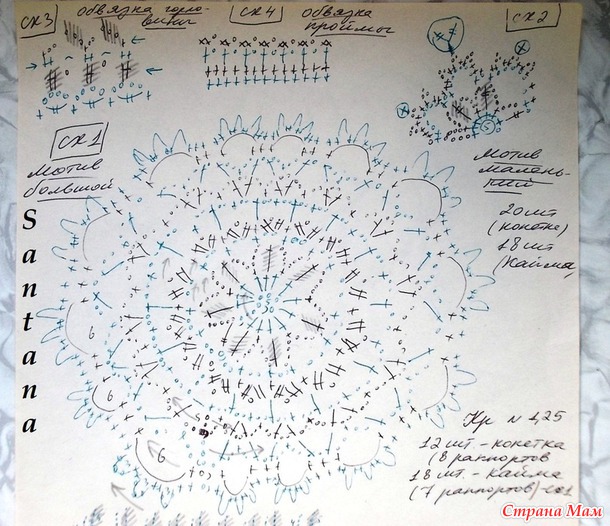 СХ 3
обвязка горло-
вины
СХ 4
обвязка
проймы
СХ 2
СХ 1
мотив
большой
мотив
малень-
кий
20 шт
(кокетка)
18 шт
(кайма)
Santana
6
6
6
Кр № 1,25
12 шт - кокетка
(8 раппортов
18 шт. - кайма
(7 раппортов)
Страна Мам